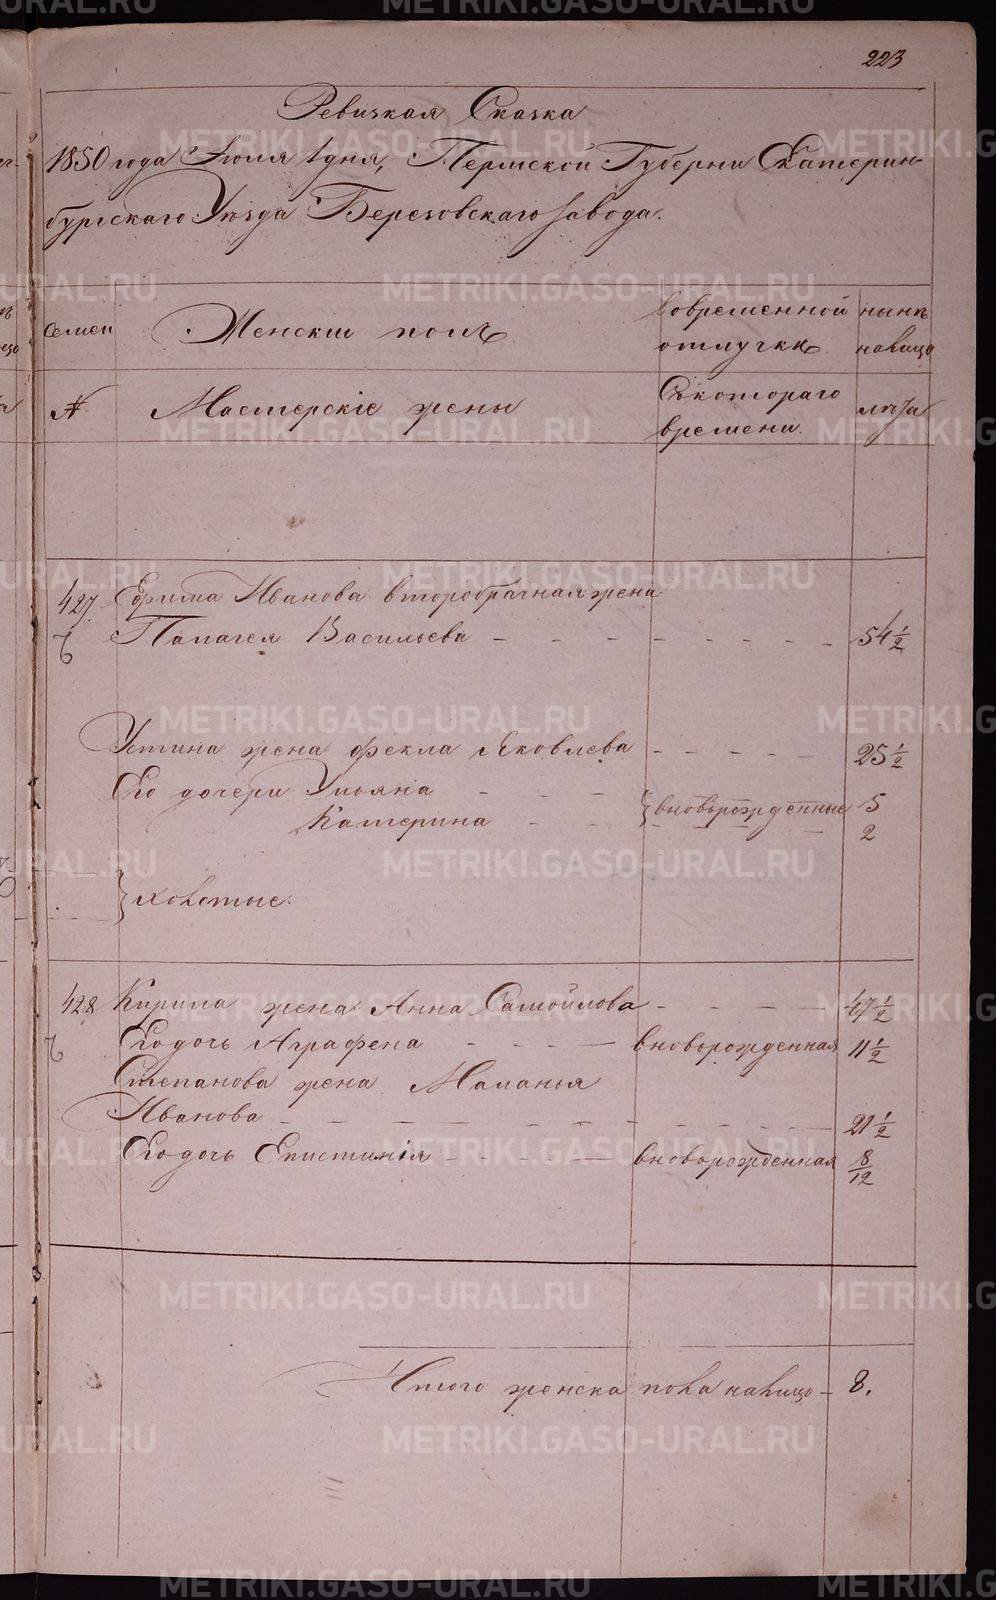 223
Ревизкая Сказка
1850 года Июля 1 дня, Пермской Губерни Екатерин-
бургскаго Уѣзда Березовскаго завода.
Семеи
Женскии полъ
Вовременной
отлучкѣ
нынѣ
налицо
№
Мастерскіе жены
Съкотораго
времени
лѣта
427
Ефима Иванова второбрачная жена
Палагея Васильева 54 1/2
Устина жена Фекла Яковлева 25 1/2
Его дочери Ульяна
Катерина
} вновьрожденные 5
2
} холостые.
428 Кирила жена Анна Самойлова 47 1/2
Егодочь Аграфена вноворожденная 11 1/2
Степанова жена Маланья
Иванова 21 1/2
Егодочь Епистинія вноворожденная 8/12
Итого женска пола налицо - 8.
METRIKI.GASO-URAL.RU